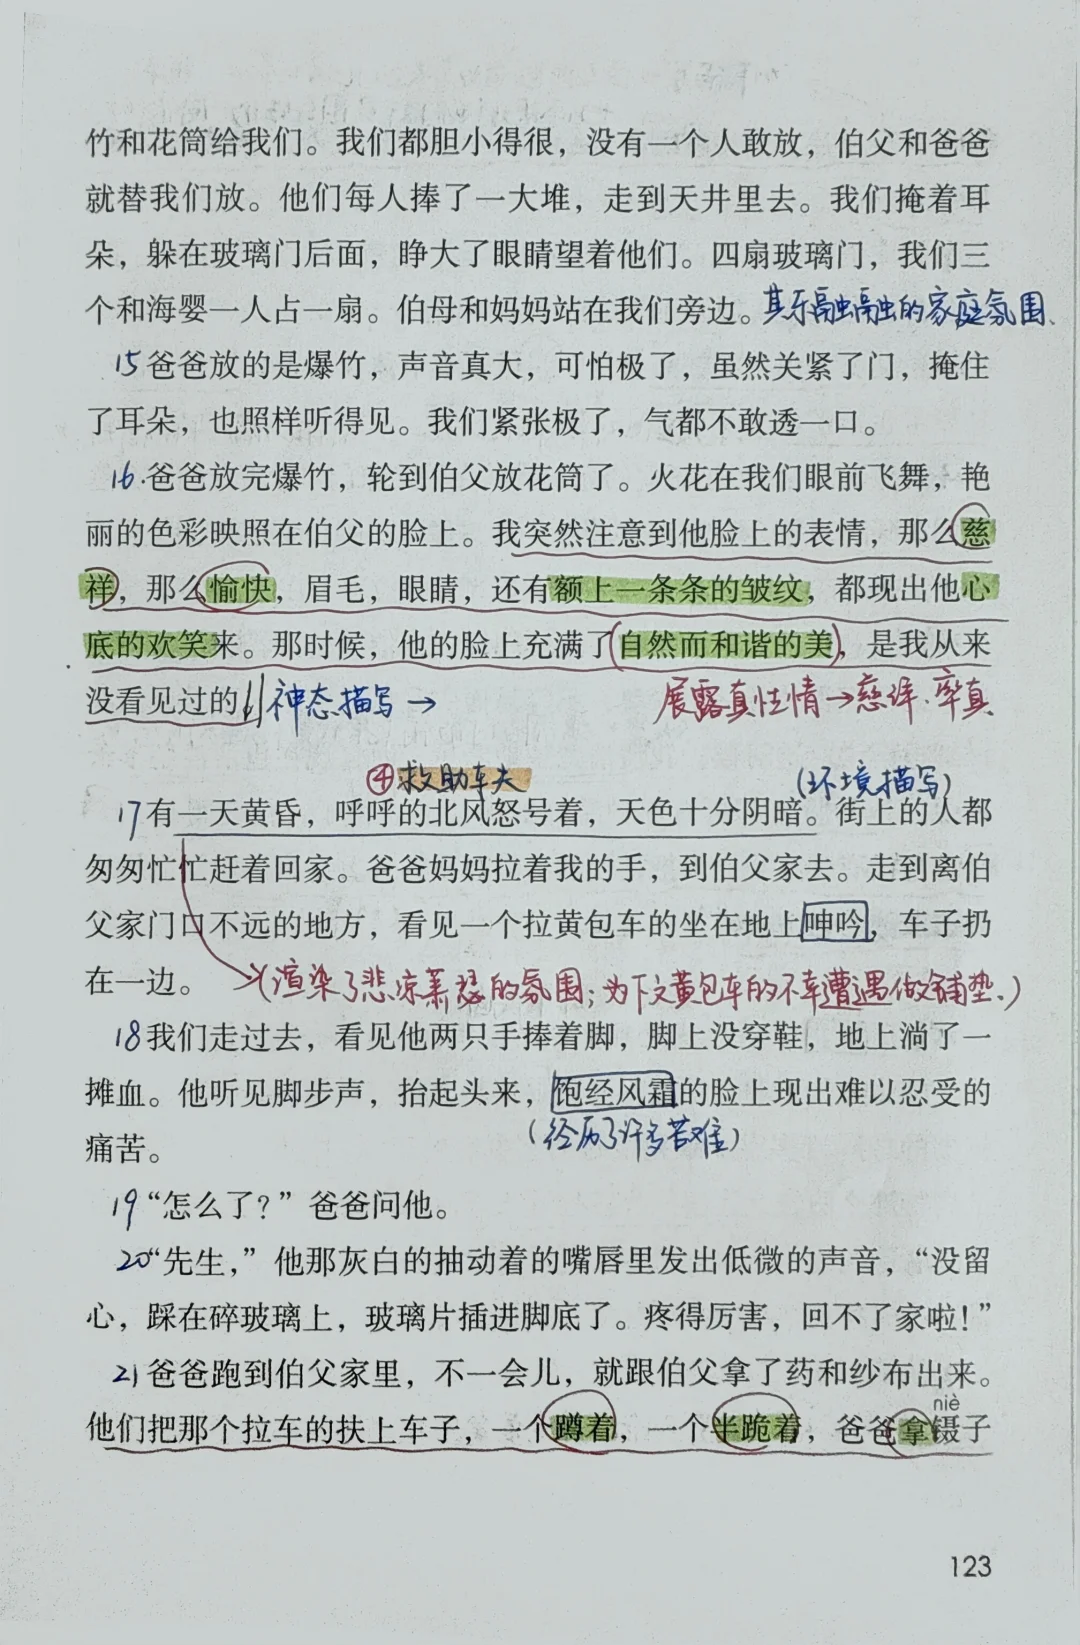 竹和花筒给我们。我们都胆小得很，没有一个人敢放，伯父和爸爸
就替我们放。他们每人捧了一大堆，走到天井里去。我们掩着耳
朵，躲在玻璃门后面，睁大了眼睛望着他们。四扇玻璃门，我们三
个和海婴一人占一扇。伯母和妈妈站在我们旁边。其乐融融的家庭氛围、
15爸爸放的是爆竹，声音真大，可怕极了，虽然关紧了门，掩住
了耳朵，也照样听得见。我们紧张极了，气都不敢透一口。
16.爸爸放完爆竹，轮到伯父放花筒了。火花在我们眼前飞舞，艳
丽的色彩映照在伯父的脸上。我突然注意到他脸上的表情，那么慈
祥，那么愉快，眉毛，眼睛，还有额上一条条的皱纹，都现出他心
底的欢笑来。那时候，他的脸上充满了(自然而和谐的美)，是我从来
没看见过的。神态描写→ 展露真性情→慈祥、率真
④救助车夫 (环境描写)
17有一天黄昏，呼呼的北风怒号着，天色十分阴暗。街上的人都
匆匆忙忙赶着回家。爸爸妈妈拉着我的手，到伯父家去。走到离伯
父家门口不远的地方，看见一个拉黄包车的坐在地上呻吟，车子扔
在一边。(渲染了悲凉萧瑟的氛围；为下文黄包车的不幸遭遇做铺垫.)
18我们走过去，看见他两只手捧着脚，脚上没穿鞋，地上淌了一
摊血。他听见脚步声，抬起头来，饱经风霜的脸上现出难以忍受的
(经历了许多苦难)
痛苦。
19“怎么了？”爸爸问他。
20“先生，”他那灰白的抽动着的嘴唇里发出低微的声音，“没留
心，踩在碎玻璃上，玻璃片插进脚底了。疼得厉害，回不了家啦！”
21爸爸跑到伯父家里，不一会儿，就跟伯父拿了药和纱布出来。
niè
他们把那个拉车的扶上车子，一个蹲着，一个半跪着，爸爸拿镊子
123